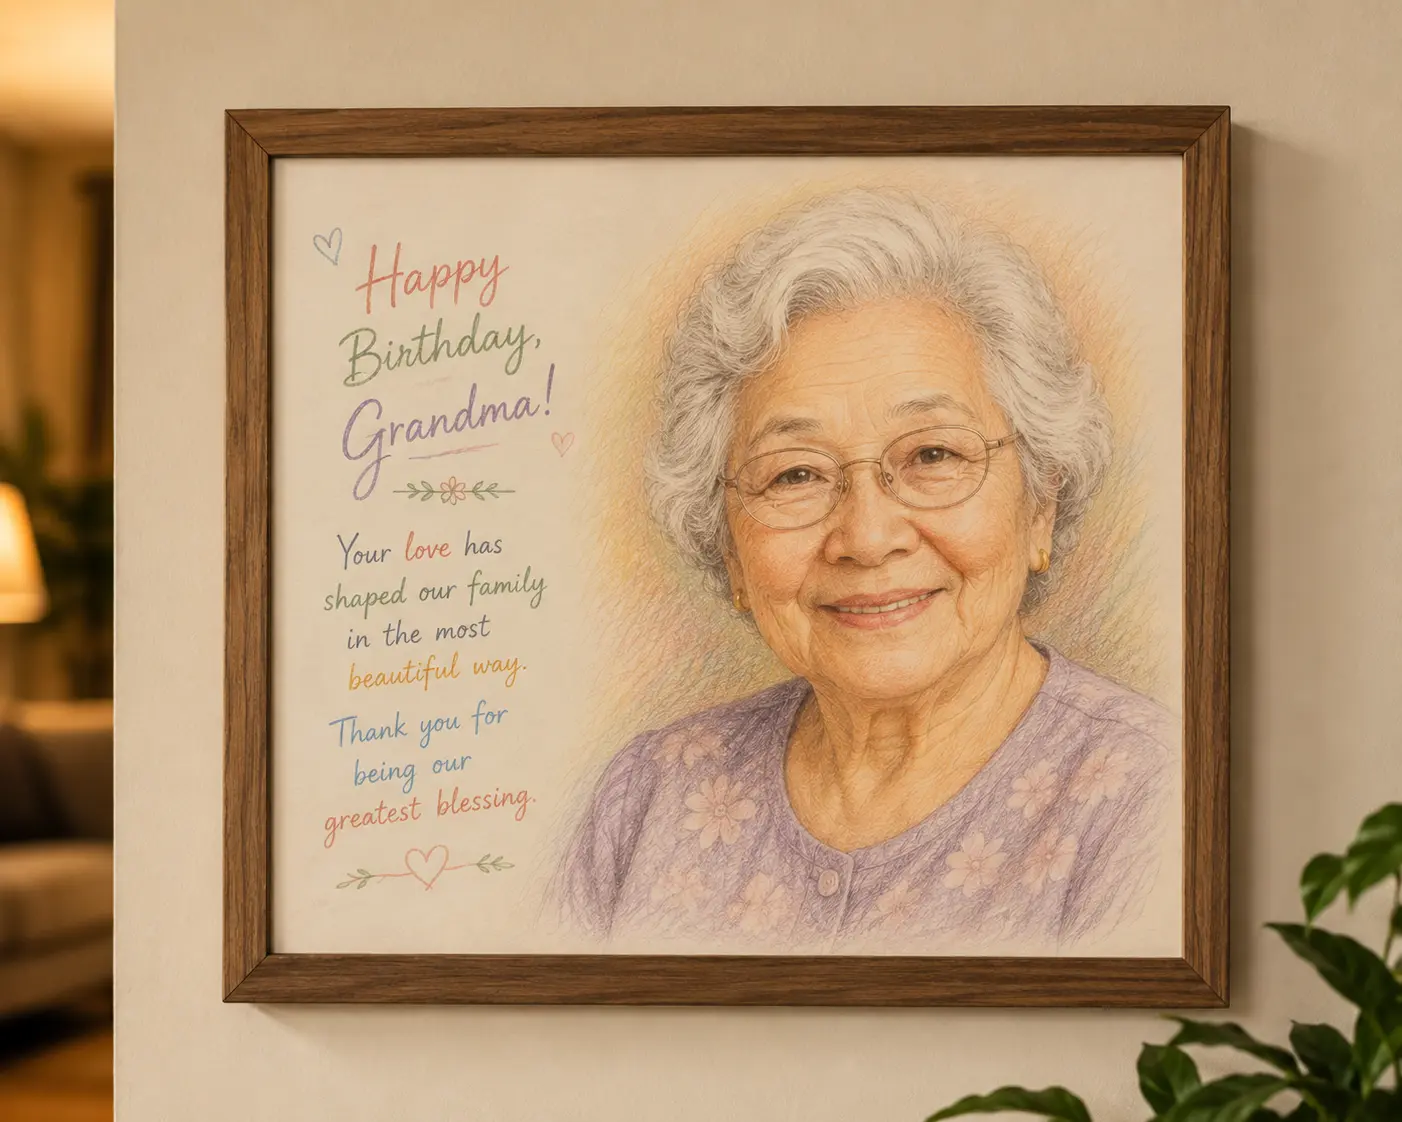 Happy
Birthday,
Grandma!
Your love has
shaped our family
in the most
beautiful way.
Thank you for
being our
greatest blessing.